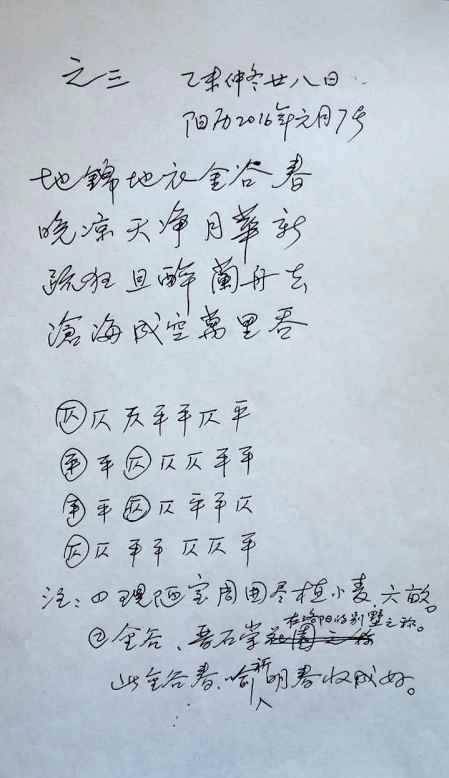 之三 乙未仲冬廿八日
阳历2016年元月7号
地錦地衣金谷春
晚凉天净月華新
疏狂且醉蘭舟去
滄海成空萬里吞
仄仄仄平平仄平
平平仄仄仄平平
平平仄仄平平仄
仄仄平平仄仄平
注：①现陋室周围尽植小麦六畝。
②金谷、晋石崇在洛阳的别墅之称。
此金谷春、喻祈明春收成好。